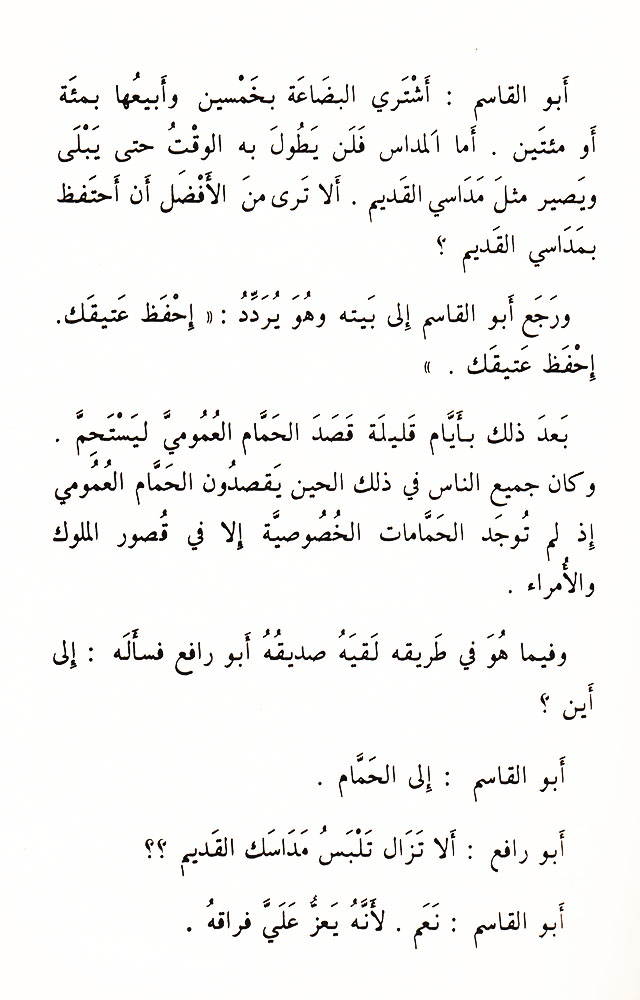 أَبو القاسم : أَشْتَري البضَاعَة بخَمْسين وأَبيعُها بمئَة
أَو مئتَين . أَما اَلمداس فَلَن يَطُولَ به الوقْتُ حتى يَبْلَى
ويَصير مثلَ مَدَاسي القَديم . أَلا تَرى منَ الأَفْضَل أَن أَحتَفظ
بمَدَاسي القَديم ؟
ورَجَع أَبو القاسم إِلى بَيته وهُوَ يُرَدِّدُ : « إِحْفَظ عَتيقَك .
إِحْفَظ عَتيقَك . »
بَعدَ ذلك بأَيَّام قَليلَة قَصَدَ الحَمَّام العُمُوميَّ ليَسْتَحِمَّ .
وكان جميع الناس في ذلك الحين يَقصدُون الحَمَّام العُمُومي
إِذ لم تُوجَد الحَمَّامات الخُصُوصيَّة إِلا في قُصور الملوك
والأُمراء .
وفيما هُوَ في طَريقه لَقيَهُ صديقُهُ أَبو رافع فسأَلَه : إِلى
أَين ؟
أَبو القاسم : إِلى الحَمَّام .
أَبو رافع : أَلا تَزَال تَلْبَسُ مَدَاسَك القَديم ؟؟
أَبو القاسم : نَعَم . لأَنَّهُ يَعزُّ عَلَيَّ فراقهُ .